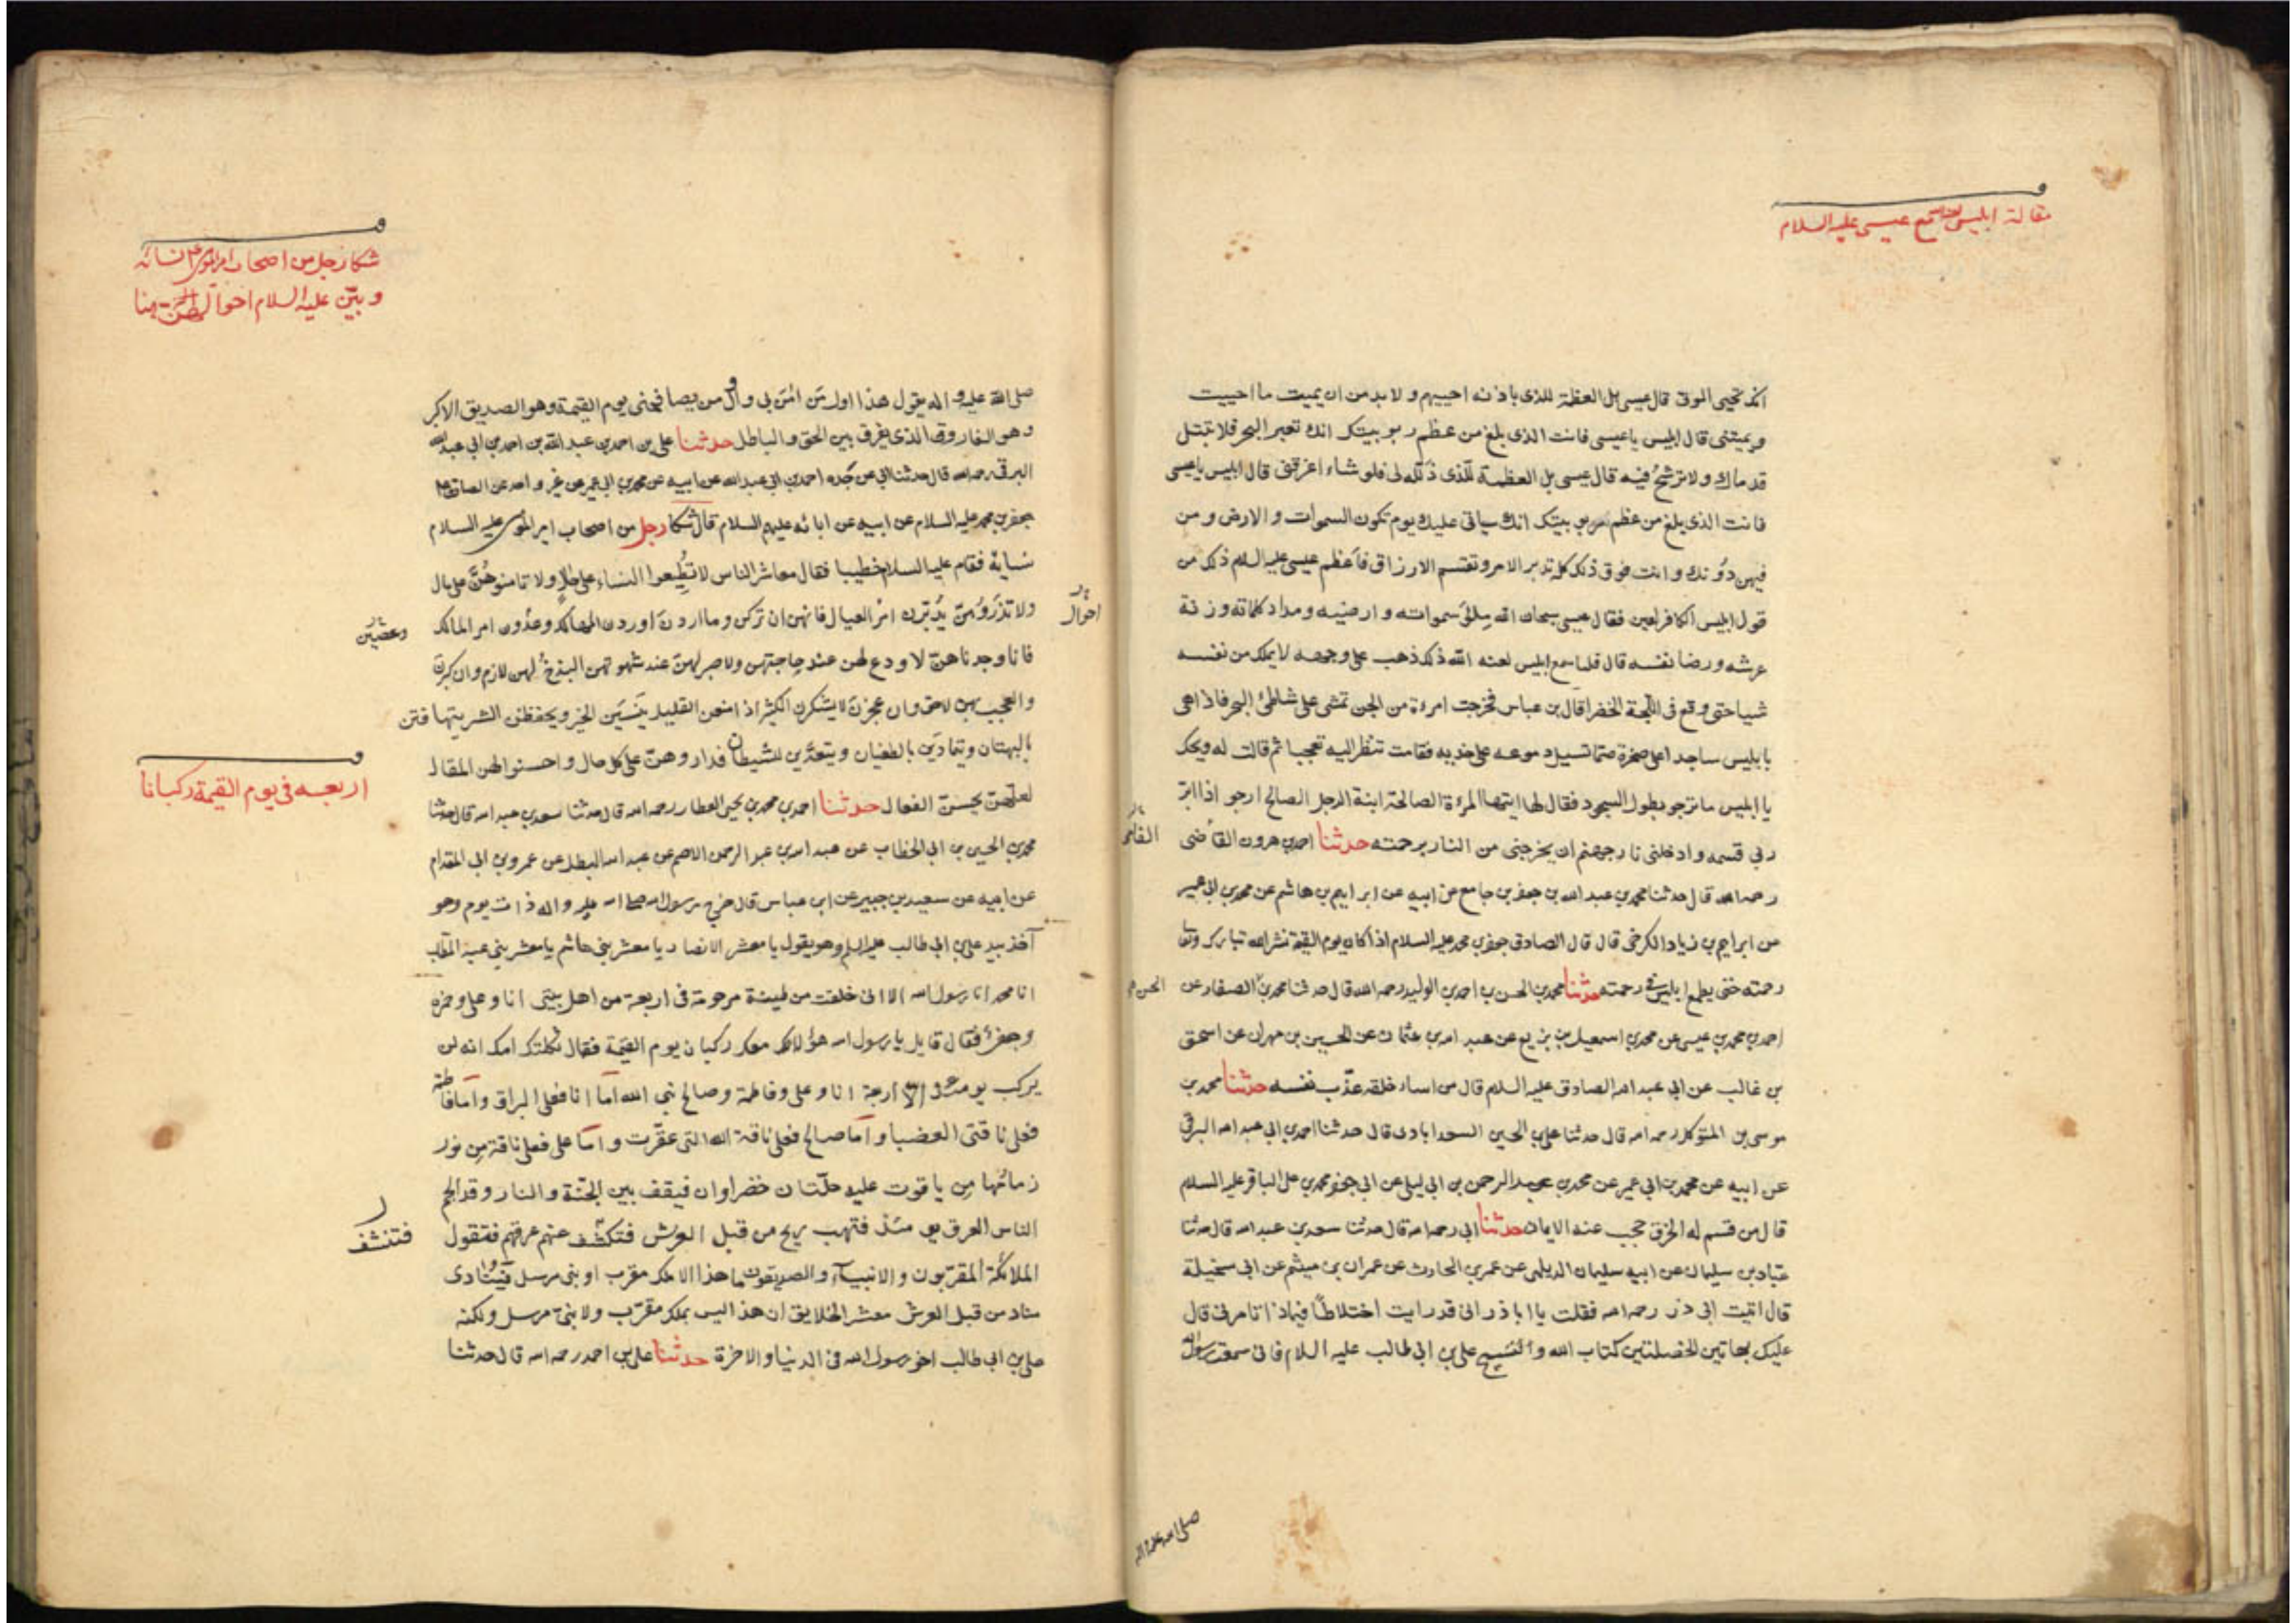 مقالة ابليس مع عيسى عليه السلام
انك تحيى الموتى قال عيسى بل العظمة للذى باذنه احييهم ولا بد من ان يميت ما احييت
ويميتنى قال ابليس يا عيسى فانت الذى بلغ من عظم ربوبيتك انك تعبر البحر فلا تبتل
قدماك ولا ترسخ فيه قال عيسى بل العظمة للذى ذلّله لى فلو شاء اغرقنى قال ابليس يا عيسى
فانت الذى بلغ من عظم ربوبيتك انك سياتى عليك يوم تكون السموات والارض ومن
فيهن دونك وانت فوق ذلك كله تدبر الامر وتقسم الارزاق فاعظم عيسى عليه السلام ذلك من
قول ابليس الكافر اللعين فقال عيسى سبحان الله ملئ سمواته وارضيه ومداد كلماته وزنة
عرشه ورضا نفسه قال فلما سمع ابليس لعنه الله ذلك ذهب على وجهه لا يملك من نفسه
شيا حتى وقع فى اللجة الخضرا قال بن عباس فخرجت امرءة من الجن تمشى على شاطئ البحر فاذا هى
بابليس ساجدا على صخرة صما تسيل دموعه على خديه فقامت تنظر اليه تعجبا ثم قالت له ويحك
يا ابليس ما ترجو بطول السجود فقال لها ايتها المرءة الصالحة ابنة الرجل الصالح ارجو اذا ابرّ
ربى قسمه وادخلنى نار جهنم ان يخرجنى من النار برحمته حدثنا احمد بن هرون القاضى
القامى
رحمه الله قال حدثنا محمد بن عبد الله بن جعفر بن جامع عن ابيه عن ابراهيم بن هاشم عن محمد بن ابى عمير
عن ابراهيم بن زياد الكرخى قال قال الصادق جعفر بن محمد عليه السلام اذا كان يوم القيمة نشر الله تبارك وتعا
رحمته حتى يطمع ابليس فى رحمته حدثنا محمد بن الحسن بن احمد بن الوليد رحمه الله قال حدثنا محمد بن الصفار عن
الحسن
احمد بن محمد بن عيسى عن محمد بن اسمعيل بن بزيع عن عبد الله بن عثمان عن الحسين بن مهران عن اسحق
بن غالب عن ابى عبد الله الصادق عليه السلام قال من اساء خلقه عذّب نفسه حدثنا محمد بن
موسى بن المتوكل رحمه الله قال حدثنا على بن الحسين السعدابادى قال حدثنا احمد بن ابى عبد الله البرقى
عن ابيه عن محمد بن ابى عمير عن محمد بن عبد الرحمن بن ابى ليلى عن ابى جعفر محمد بن على الباقر عليه السلام
قال من قسم له الخرق حجب عنه الايمان حدثنا ابى رحمه الله قال حدثنا سعد بن عبد الله قال حدثنا
عباد بن سليمان عن ابيه سليمان الديلمى عن عمر بن الحارث عن عمران بن ميثم عن ابى سخيلة
قال اتيت ابى ذر رحمه الله فقلت يا ابا ذر انى قد رايت اختلاطًا فبماذا تامرنى قال
عليك بهاتين الخصلتين كتاب الله والشيخ على بن ابى طالب عليه السلام فانى سمعت رسول الله
صلى الله عليه واله
شكا رجل من اصحاب امير المؤمنين نسائه
وبيّن عليه السلام احوالهن
صلى الله عليه واله يقول هذا اول من امن بى واول من يصافحنى يوم القيمة وهو الصديق الاكبر
وهو الفاروق الذى يفرق بين الحق والباطل حدثنا على بن احمد بن عبد الله بن احمد بن ابى عبد الله
البرقى رحمه الله قال حدثنا ابى عن جده احمد بن ابى عبد الله عن ابيه عن محمد بن ابى عمير عن غير واحد عن الصادق
جعفر بن محمد عليه السلام عن ابيه عن ابائه عليهم السلام قال شكا رجل من اصحاب امير المؤمنين عليه السلام
نسائه فقام عليه السلام خطيبا فقال معاشر الناس لا تطيعوا النساء على حال ولا تامنوهنّ على مال
احوال
ولا تذروهنّ يدبّرن امر العيال فانهن ان تركن وما اردن اوردن المهالك وعدون امر المالك
وعصين
فانا وجدناهنّ لا ورع لهن عند حاجتهن ولا صبر لهنّ عند شهوتهن البذخ لهن لازم وان كبرن
والعجب بهن لاحق وان عجزن لا يشكرن الكثير اذا منعن القليل ينسين الخير ويحفظن الشر يتهافتن
بالبهتان ويتمادين بالطغيان ويتصدّين للشيطان فداروهنّ على كل حال واحسنوا لهن المقال
لعلهنّ يحسنّ الفعال حدثنا احمد بن محمد بن يحيى العطار رحمه الله قال حدثنا سعد بن عبد الله قال حدثنا
اربعه فى يوم القيمة ركبانا
محمد بن الحسين بن ابى الخطاب عن عبد الله بن عبد الرحمن الاصم عن عبد الله البطل عن عمرو بن ابى المقدام
عن ابيه عن سعيد بن جبير عن ابن عباس قال خرج رسول الله صلى الله عليه واله ذات يوم وهو
آخذ بيد على بن ابى طالب عليه السلم وهو يقول يا معشر الانصار يا معشر بنى هاشم يا معشر بنى عبد المطلب
انا محمد انا رسول الله الا انى خلقت من طينة مرحومة فى اربعة من اهل بيتى انا وعلى وحمزه
وجعفر فقال قايل يا رسول الله هؤلاء معك ركبان يوم القيمة فقال ثكلتك امك انه لن
يركب يومئذ الا اربعة انا وعلى وفاطمة وصالح نبى الله اما انا فعلى البراق واما فاطمة
فعلى ناقتى العضبا واما صالح فعلى ناقة الله التى عقرت واما على فعلى ناقة من نور
زمامها من ياقوت عليه حلّتان خضراوان فيقف بين الجنة والنار وقد الجم
الناس العرق يومئذ فتهب ريح من قبل العرش فتكشف عنهم عرقهم فتقول
فتنشف
الملائكة المقربون والانبيآء والصديقون ما هذا الا ملك مقرب او نبى مرسل فينادى
مناد من قبل العرش معشر الخلايق ان هذا ليس بملك مقرّب ولا نبىّ مرسل ولكنه
على بن ابى طالب اخو رسول الله فى الدنيا والاخرة حدثنا على بن احمد رحمه الله قال حدثنا